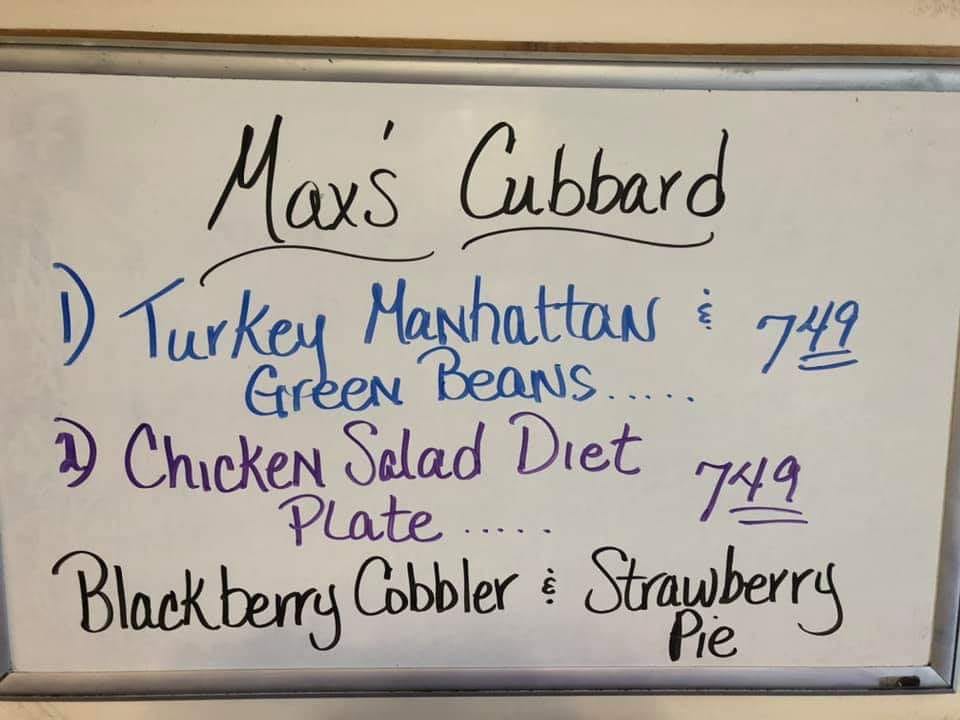 Max's Cubbard
1) Turkey Manhattan & 7 49
Green Beans.....
2) Chicken Salad Diet 7 49
Plate .....
Blackberry Cobbler & Strawberry
Pie